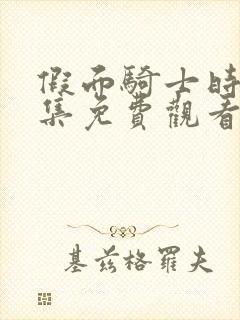 假面騎士時
集免費觀看
基茲格羅夫